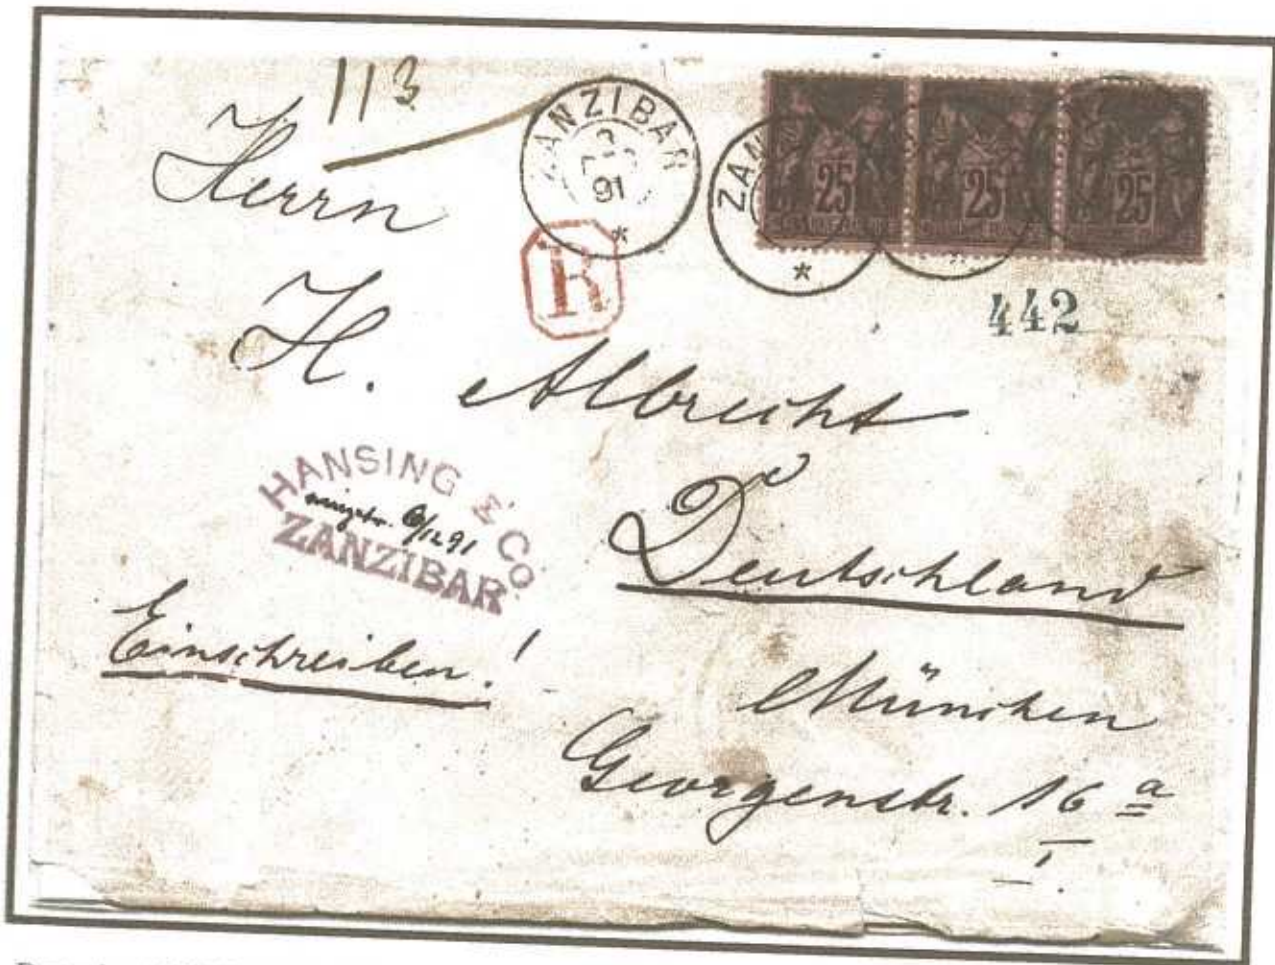 113
Herrn
ZANZIBAR
91
*
ZAN
*
25
25
25
R
442
H. Albrecht
HANSING & Co.
6/12 91
ZANZIBAR
Deutschland
Einschreiben!
München
Georgenstr. 16 a
I.